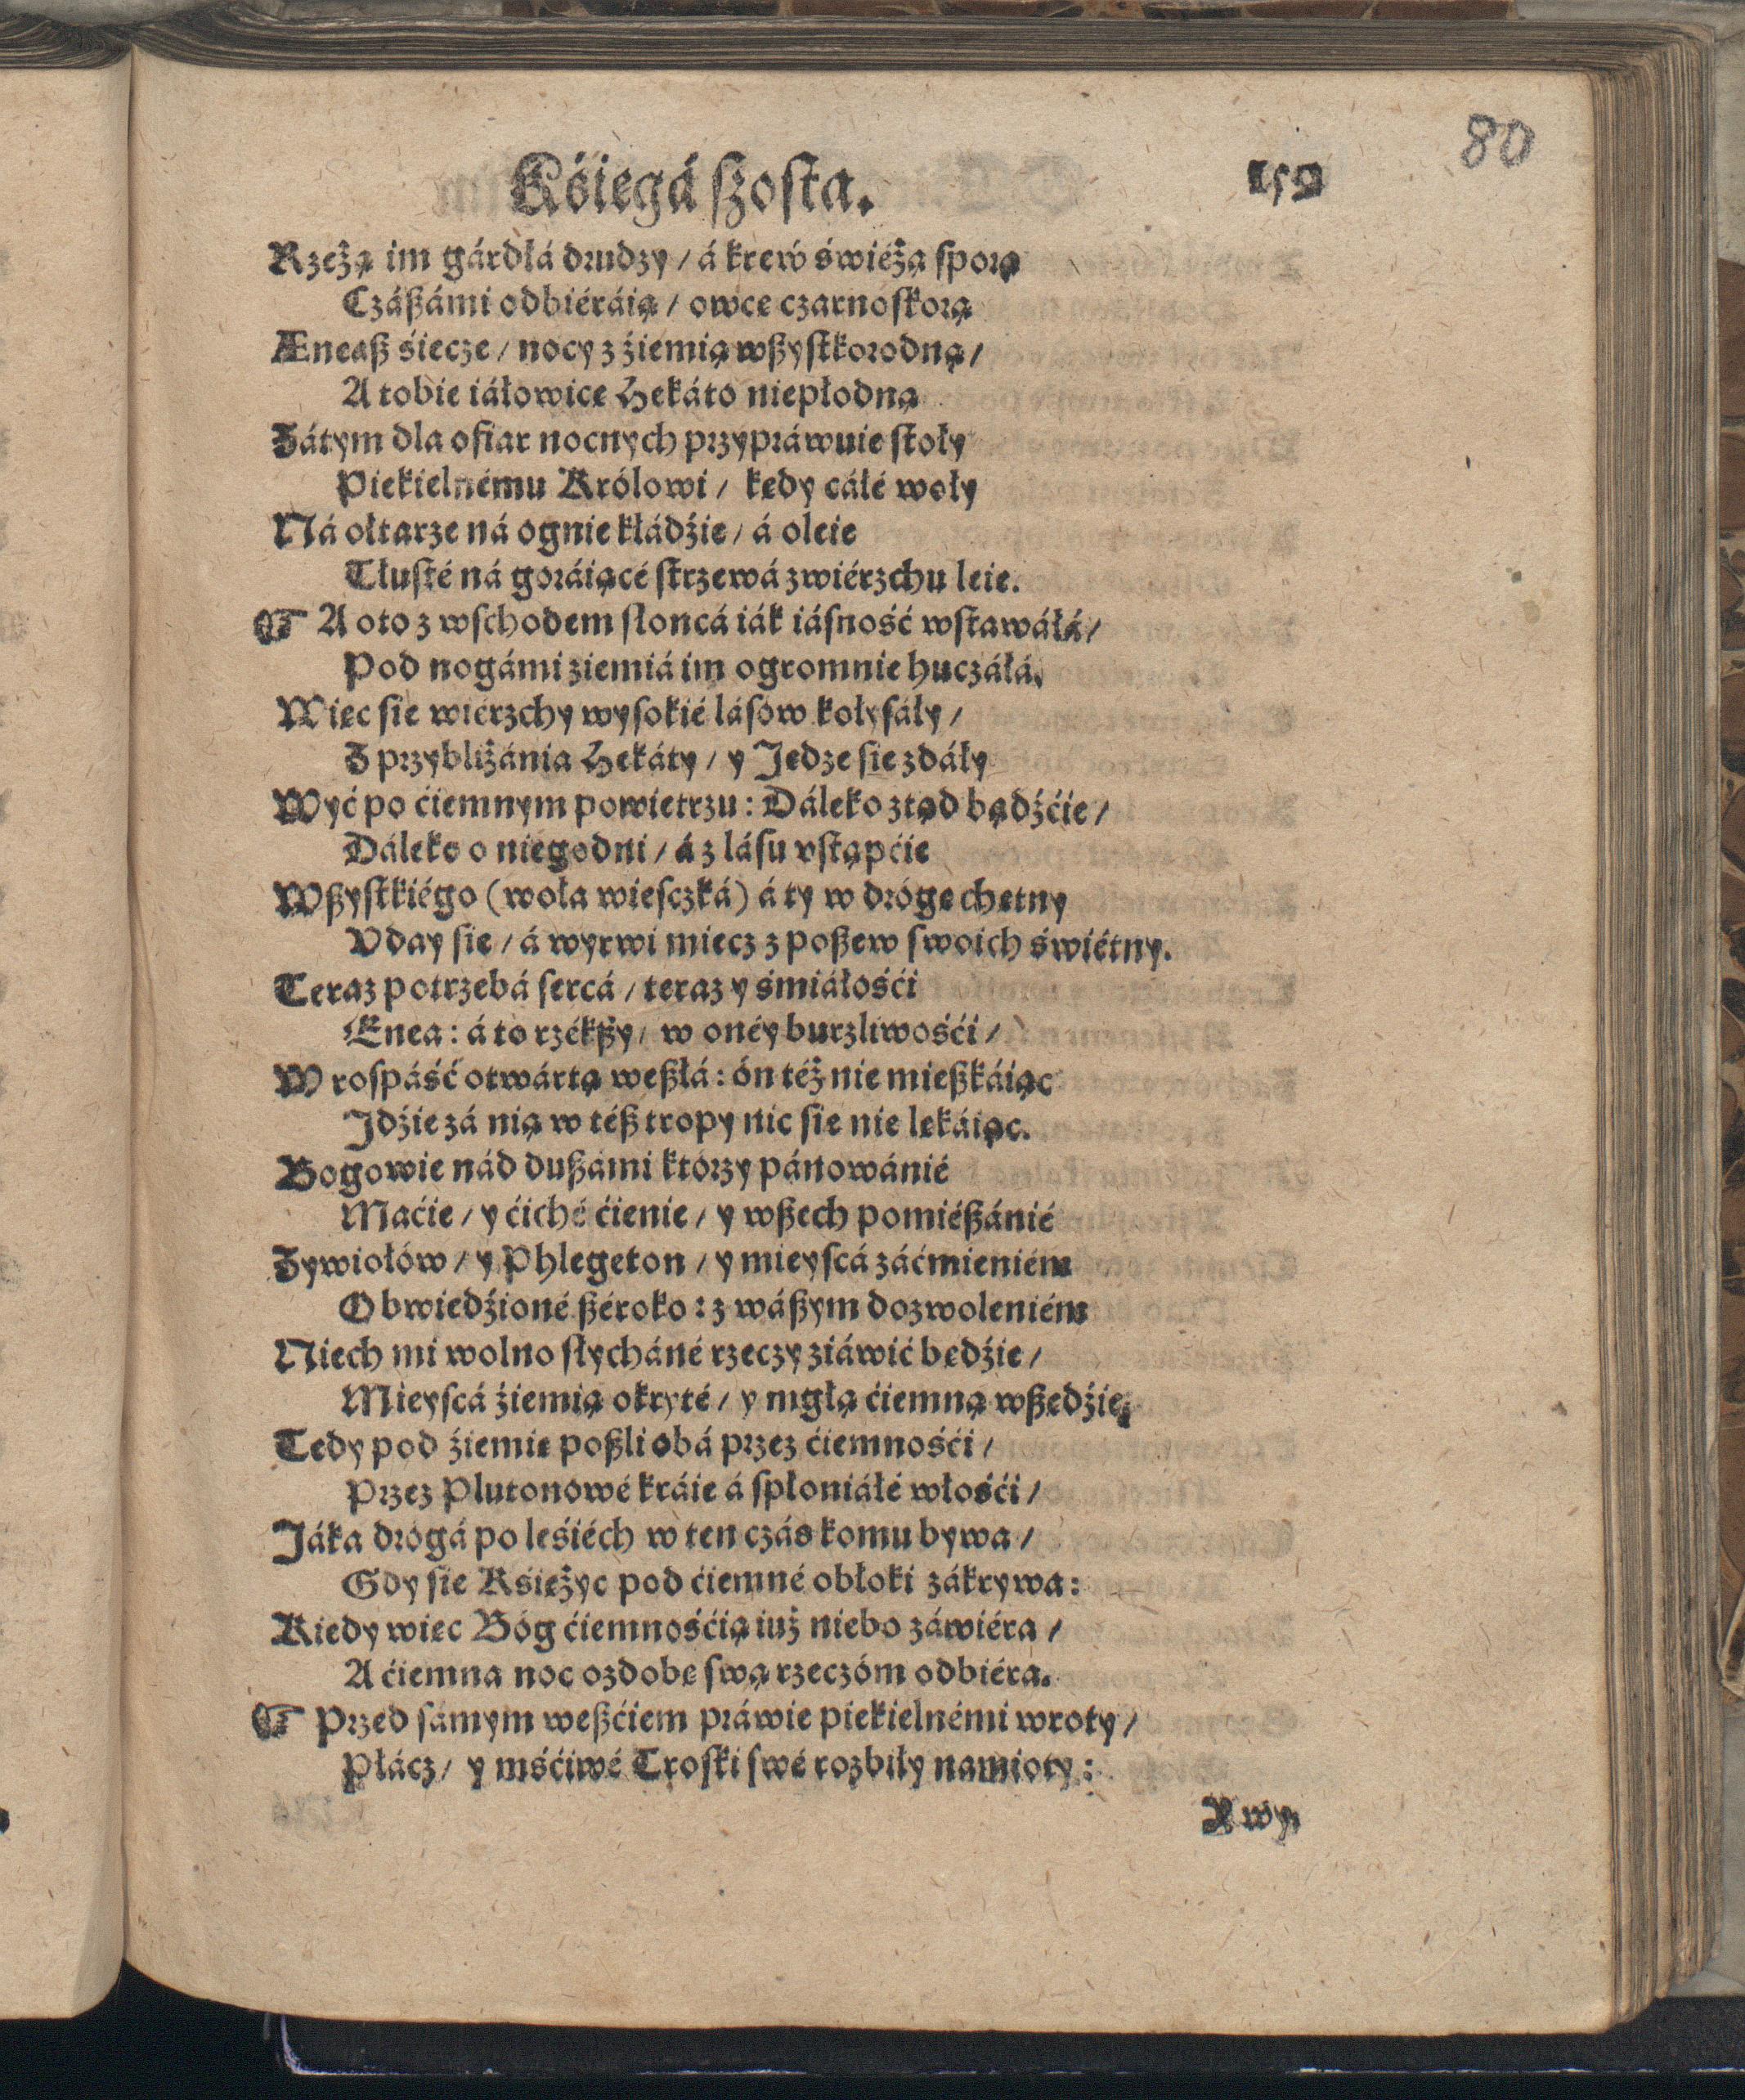 80
Kśięgá ſzoſta. 159
Rzeżą im gárdłá drudzy / á kreẃ świéżą ſporą
Czáßámi odbiéráią / owce czarnoſkorą
Æneaß śiecze / nocy z źiemią wßyſtkorodną /
A tobie iáłowice Hekáto niepłodną
Zátym dla ofiar nocnych przypráwuie ſtoły
Piekielnému Królowi / kędy cáłé woły
Ná ołtarze ná ognie kłádźie / á oleie
Tłuſté ná goráiącé ſtrzewá zwiérzchu leie.
A oto z wſchodem słoncá iák iáſność wſtawáłá /
Pod nogámi ziemiá im ogromnie huczáłá.
Więc ſie wiérzchy wyſokié láſów kołyſáły /
Z przybliżánia Hekáty / y Jędze ſie zdáły
Wyć po ćiemnym powietrzu : Dáleko ztąd bądźćie /
Dáleko o niegodni / á z láſu vſtąpćie
Wßyſtkiégo (woła wieſczká) á ty w drógę chętny
Vday ſie / á wyrwi miecz z poßew ſwoich świétny.
Teraz potrzebá ſercá / teraz y śmiáłośći
Enea : á to rzékßy / w onéy burzliwośći /
W roſpáść otwártą weßłá : ón téż nie mießkáiąc
Jdźie zá nią w téß tropy nic ſie nie lękáiąc.
Bogowie nád dußámi którzy pánowánié
Maćie / y ćiché ćienie / y wßech pomiéßánié
Zywiołów / y Phlegeton / y mieyſcá záćmieniém
Obwiedźioné ßéroko : z wáßym dozwoleniém
Niech mi wolno słycháné rzeczy ziáwić będźie /
Mieyſcá źiemią okryté / y mgłą ćiemną wßędźie.
Tedy pod źiemię poßli obá przez ćiemnośći /
Przez Plutonówé kráie á ſpłoniáłé włośći /
Jáka drógá po leśiéch w ten czás komu bywa /
Gdy ſie Kśiężyc pod ćiemné obłoki zákrywa :
Kiedy więc Bóg ćiemnośćią iuż niebo záwiéra /
A ćiemna noc ozdobę ſwą rzeczóm odbiéra.
Przed ſámym weßćiem práwie piekielnémi wroty /
Płácz / y mśćiwé Troſki ſwé rozbiły namioty :
X wy,